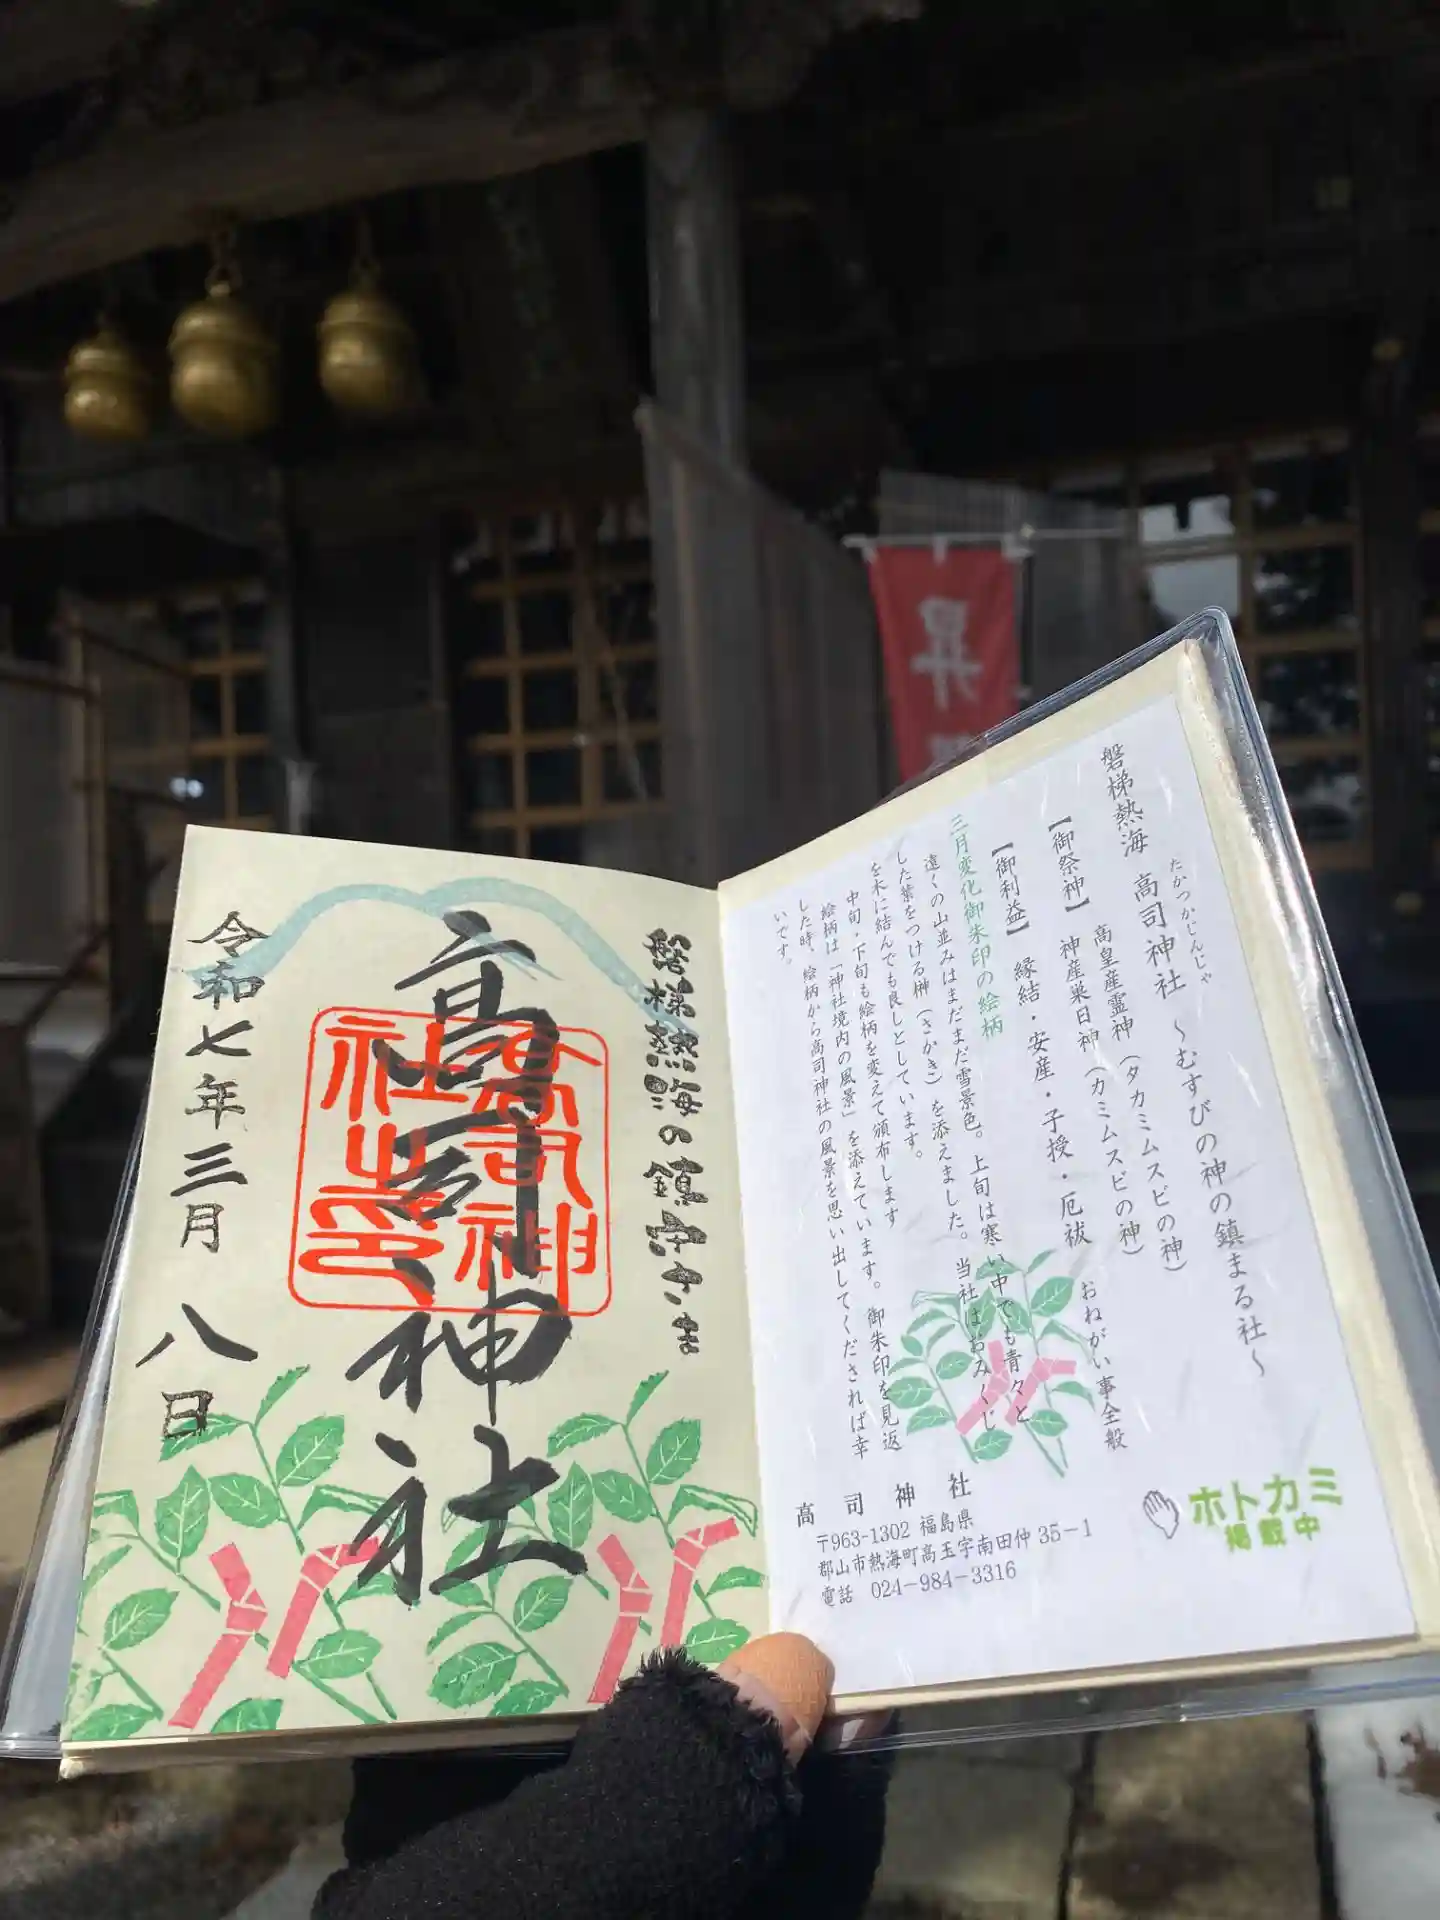 磐梯熱海の鎮守さま
高司神社
高司神社之印
令和七年三月八日
昇
磐梯熱海 高司神社 ～むすびの神の鎮まる社～
たかつかじんじゃ
【御祭神】 高皇産霊神（タカミムスビの神）
神産巣日神（カミムスビの神）
【御利益】 縁結・安産・子授・厄祓 おねがい事全般
三月変化御朱印の絵柄
遠くの山並みはまだまだ雪景色。上旬は寒い中でも青々と
した葉をつける榊（さかき）を添えました。当社はおみくじ
を木に結んでも良しとしています。
中旬・下旬も絵柄を変えて頒布します
絵柄は「神社境内の風景」を添えています。御朱印を見返
した時、絵柄から高司神社の風景を思い出してくだされば幸
いです。
高司神社
〒963-1302 福島県
郡山市熱海町高玉字南田仲 35－1
電話 024－984－3316
ホトカミ
掲載中